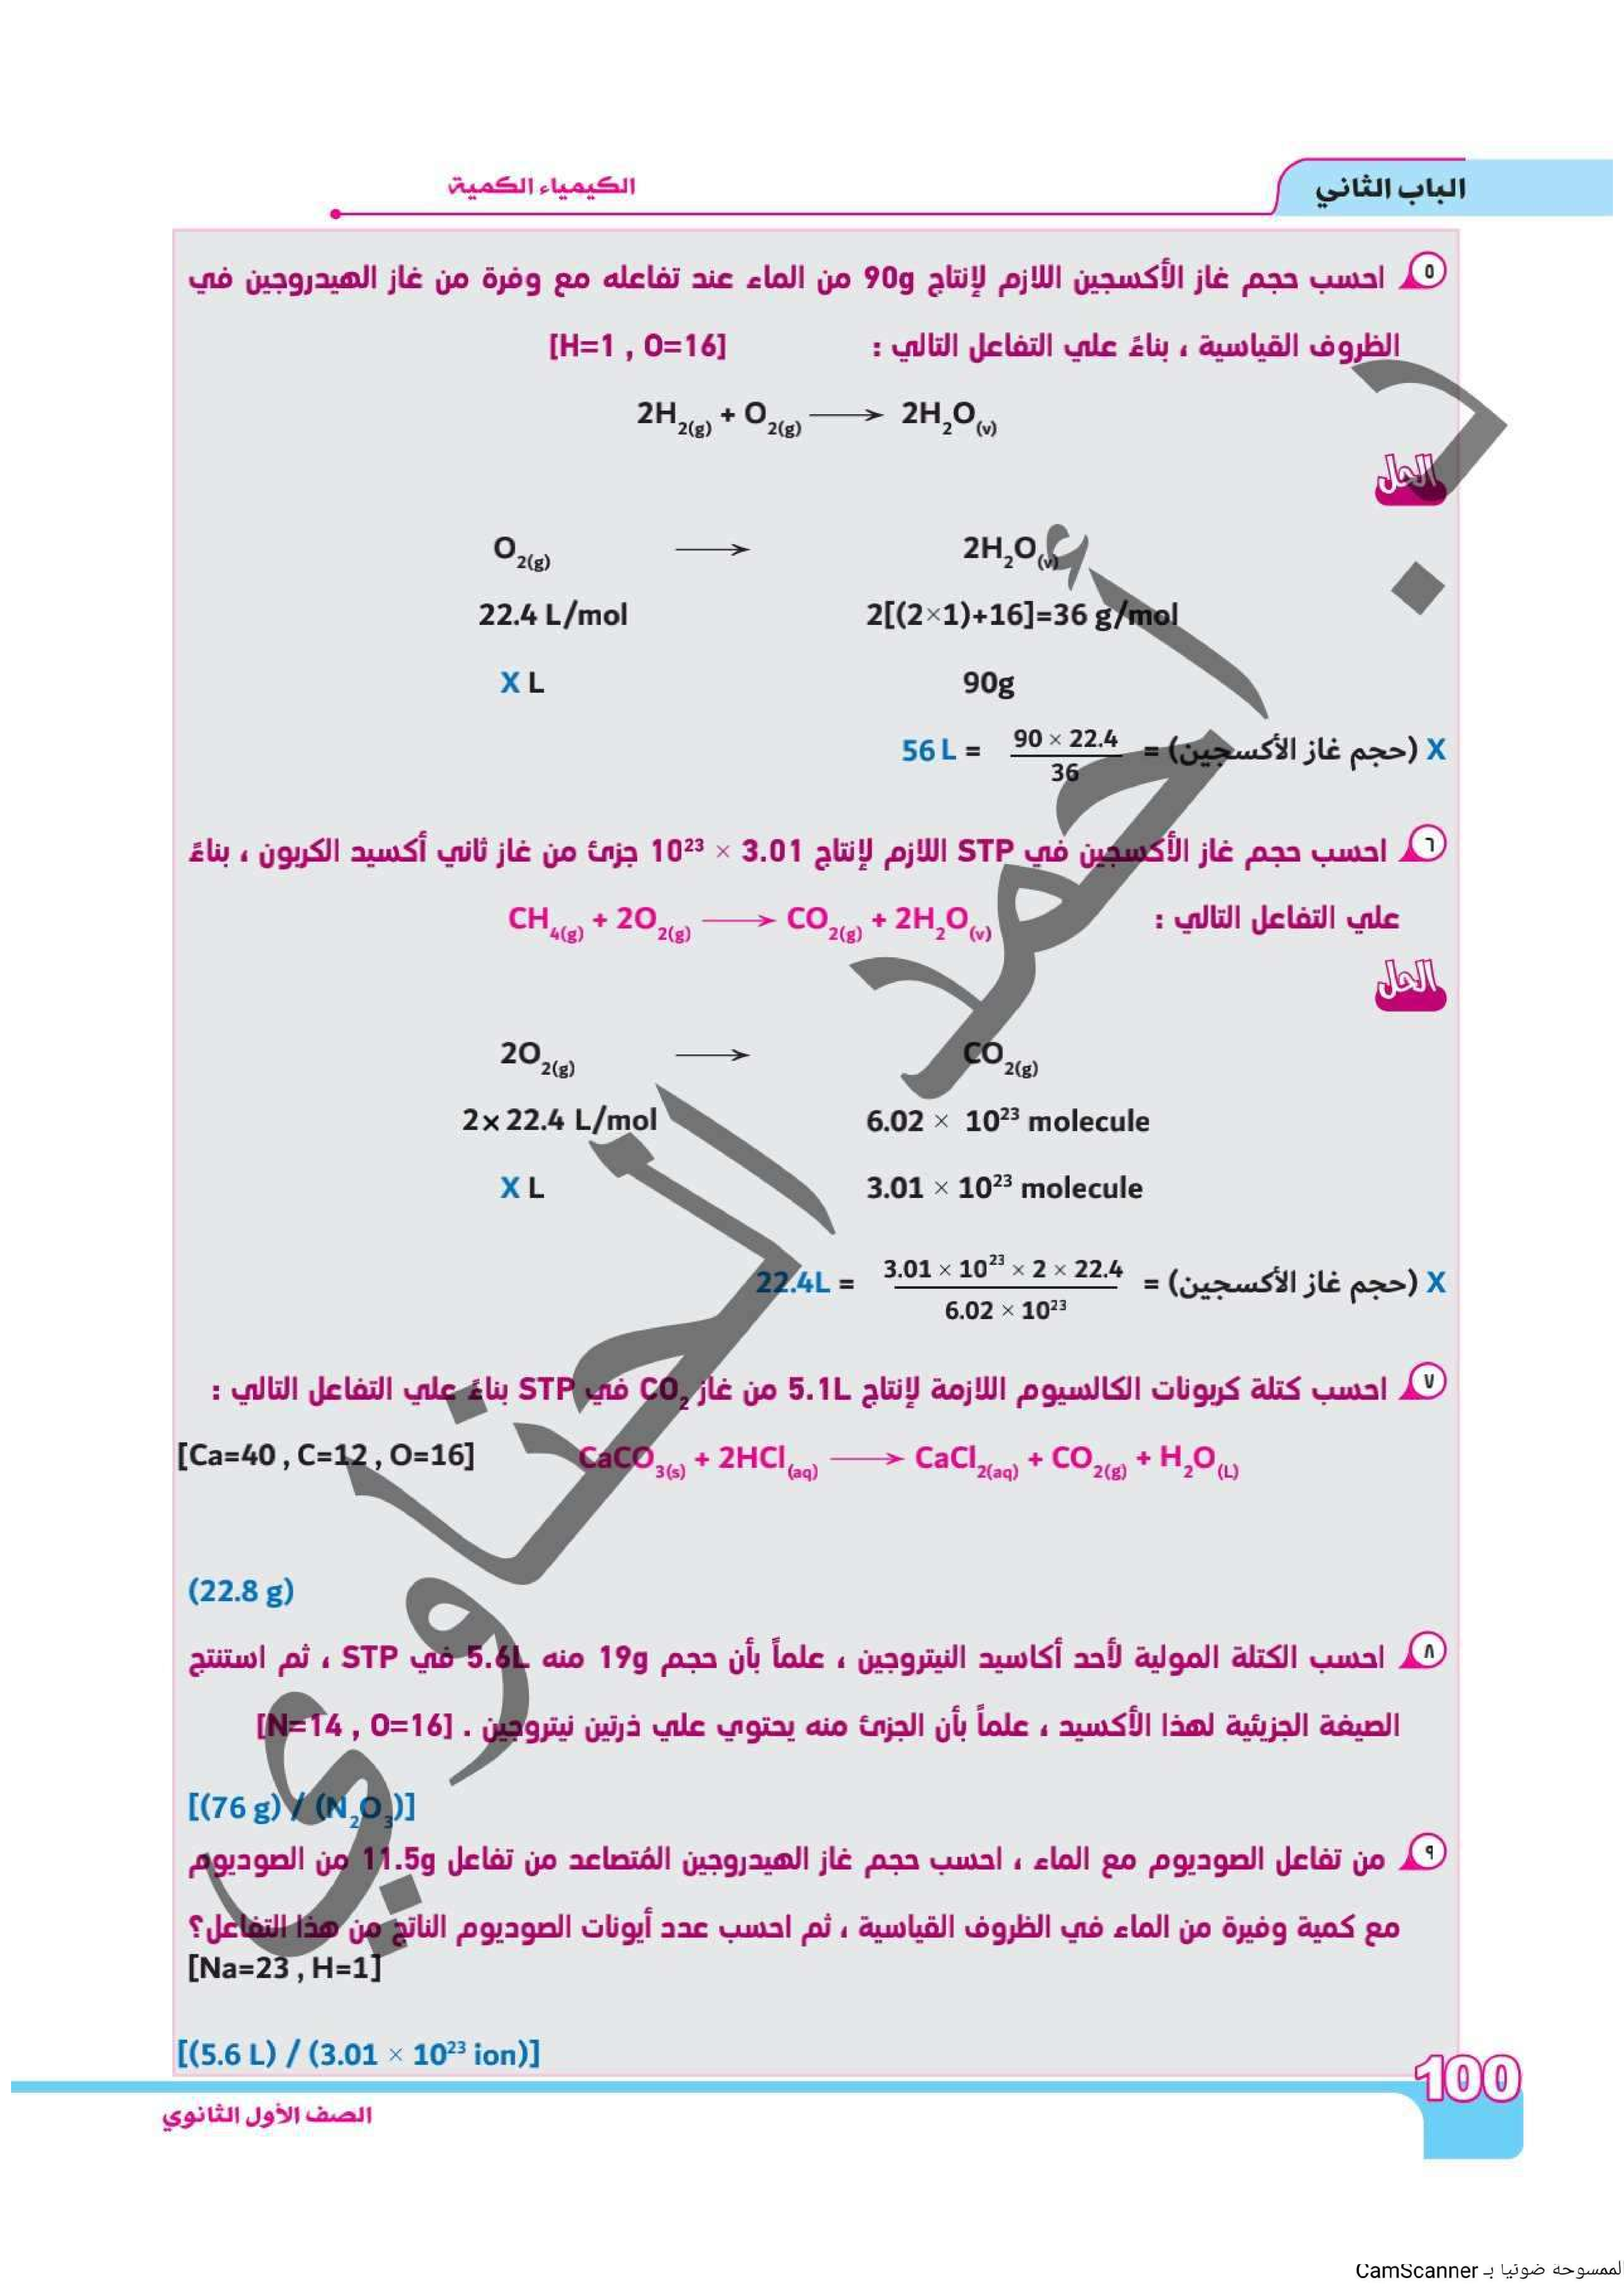 الباب الثاني
الكيمياء الكمية
٥ احسب حجم غاز الأكسجين اللازم لإنتاج 90g من الماء عند تفاعله مع وفرة من غاز الهيدروجين في
الظروف القياسية ، بناءً علي التفاعل التالي : [H=1 , O=16]
2H2(g) + O2(g) ⟶ 2H2O(v)
الحل
O2(g) ⟶ 2H2O(v)
22.4 L/mol 2[(2×1)+16]=36 g/mol
X L 90g
X (حجم غاز الأكسجين) = 90 × 22.4 / 36 = 56 L
٦ احسب حجم غاز الأكسجين في STP اللازم لإنتاج 3.01 × 10²³ جزئ من غاز ثاني أكسيد الكربون ، بناءً
علي التفاعل التالي : CH4(g) + 2O2(g) ⟶ CO2(g) + 2H2O(v)
الحل
2O2(g) ⟶ CO2(g)
2×22.4 L/mol 6.02 × 10²³ molecule
X L 3.01 × 10²³ molecule
X (حجم غاز الأكسجين) = 3.01 × 10²³ × 2 × 22.4 / 6.02 × 10²³ = 22.4L
٧ احسب كتلة كربونات الكالسيوم اللازمة لإنتاج 5.1L من غاز CO2 في STP بناءً علي التفاعل التالي :
CaCO3(s) + 2HCl(aq) ⟶ CaCl2(aq) + CO2(g) + H2O(L) [Ca=40 , C=12 , O=16]
(22.8 g)
٨ احسب الكتلة المولية لأحد أكاسيد النيتروجين ، علماً بأن حجم 19g منه 5.6L في STP ، ثم استنتج
الصيغة الجزيئية لهذا الأكسيد ، علماً بأن الجزئ منه يحتوي علي ذرتين نيتروجين . [N=14 , O=16]
[(76 g) / (N2O3)]
٩ من تفاعل الصوديوم مع الماء ، احسب حجم غاز الهيدروجين المُتصاعد من تفاعل 11.5g من الصوديوم
مع كمية وفيرة من الماء في الظروف القياسية ، ثم احسب عدد أيونات الصوديوم الناتج من هذا التفاعل؟
[Na=23 , H=1]
[(5.6 L) / (3.01 × 10²³ ion)]
100
الصف الأول الثانوي
د. أحمد الحناوي
الممسوحة ضوئيا بـ CamScanner